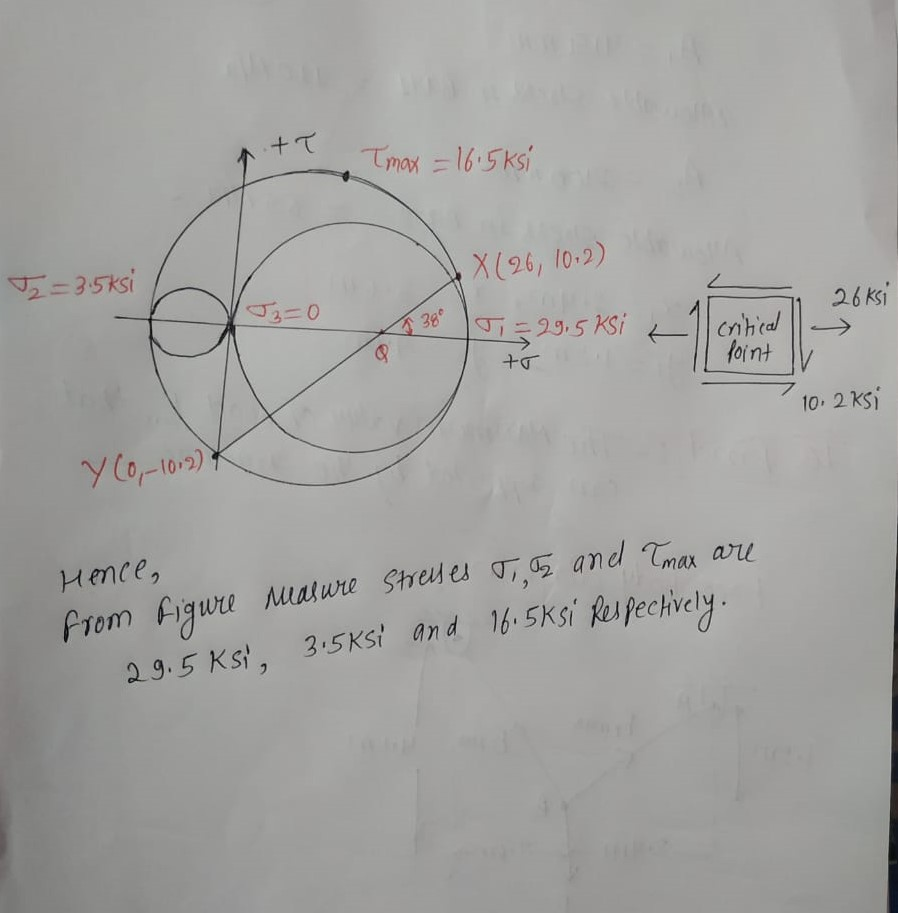 +τ
τmax = 16.5 ksi
X(26, 10.2)
σ2 = 3.5 ksi
σ3 = 0
38°
σ1 = 29.5 KSi
Q
+σ
Y(0, -10.2)
26 Ksi
critical
Point
10.2 KSi
Hence,
from figure measure stresses σ1, σ2 and τmax are
29.5 KSi, 3.5 KSi and 16.5 KSi Respectively.